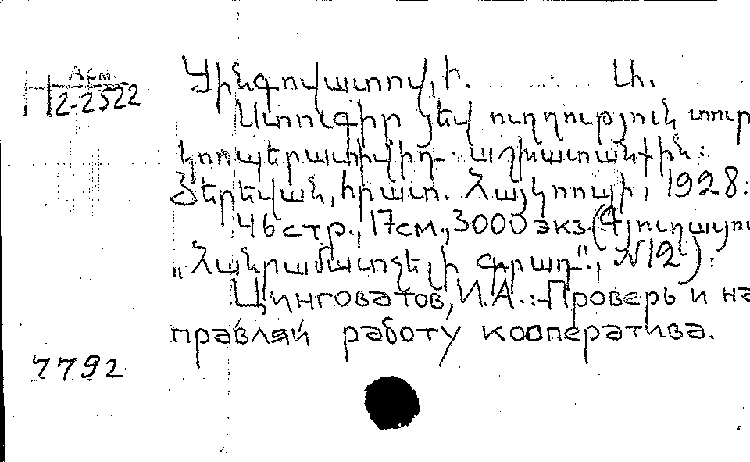 Арм.
2-2522
Ցինգովատով, Ի. Ա.
Ստուգիր յեվ ուղղություն տուր
կոոպերատիվիդ աշխատանքին:
Յերեվան, հրատ. Հայկոոպի, 1928:
46 стр., 17см., 3000 экз. (Գյուղայ
„Հանրամատչելի գրադ.", N12):
Цинговатов, И.А.: Проверь и на
правляй работу кооператива.
7792